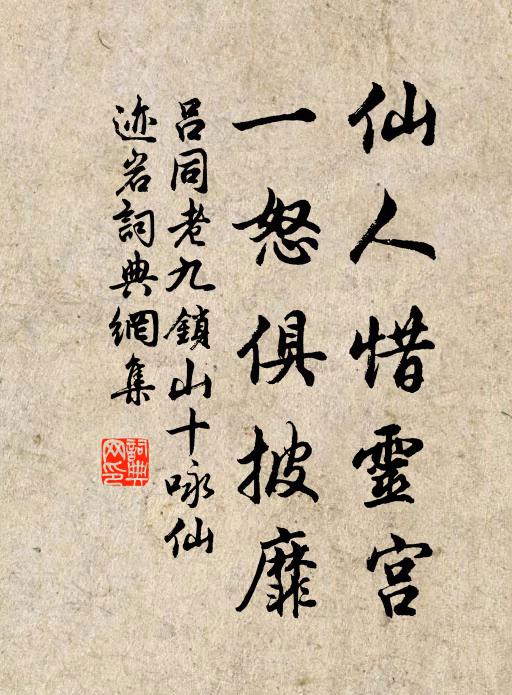 仙人惜靈宫
一怒俱披靡
吕同老九鎖山十咏仙
迹岩詞典網集
詞典网印